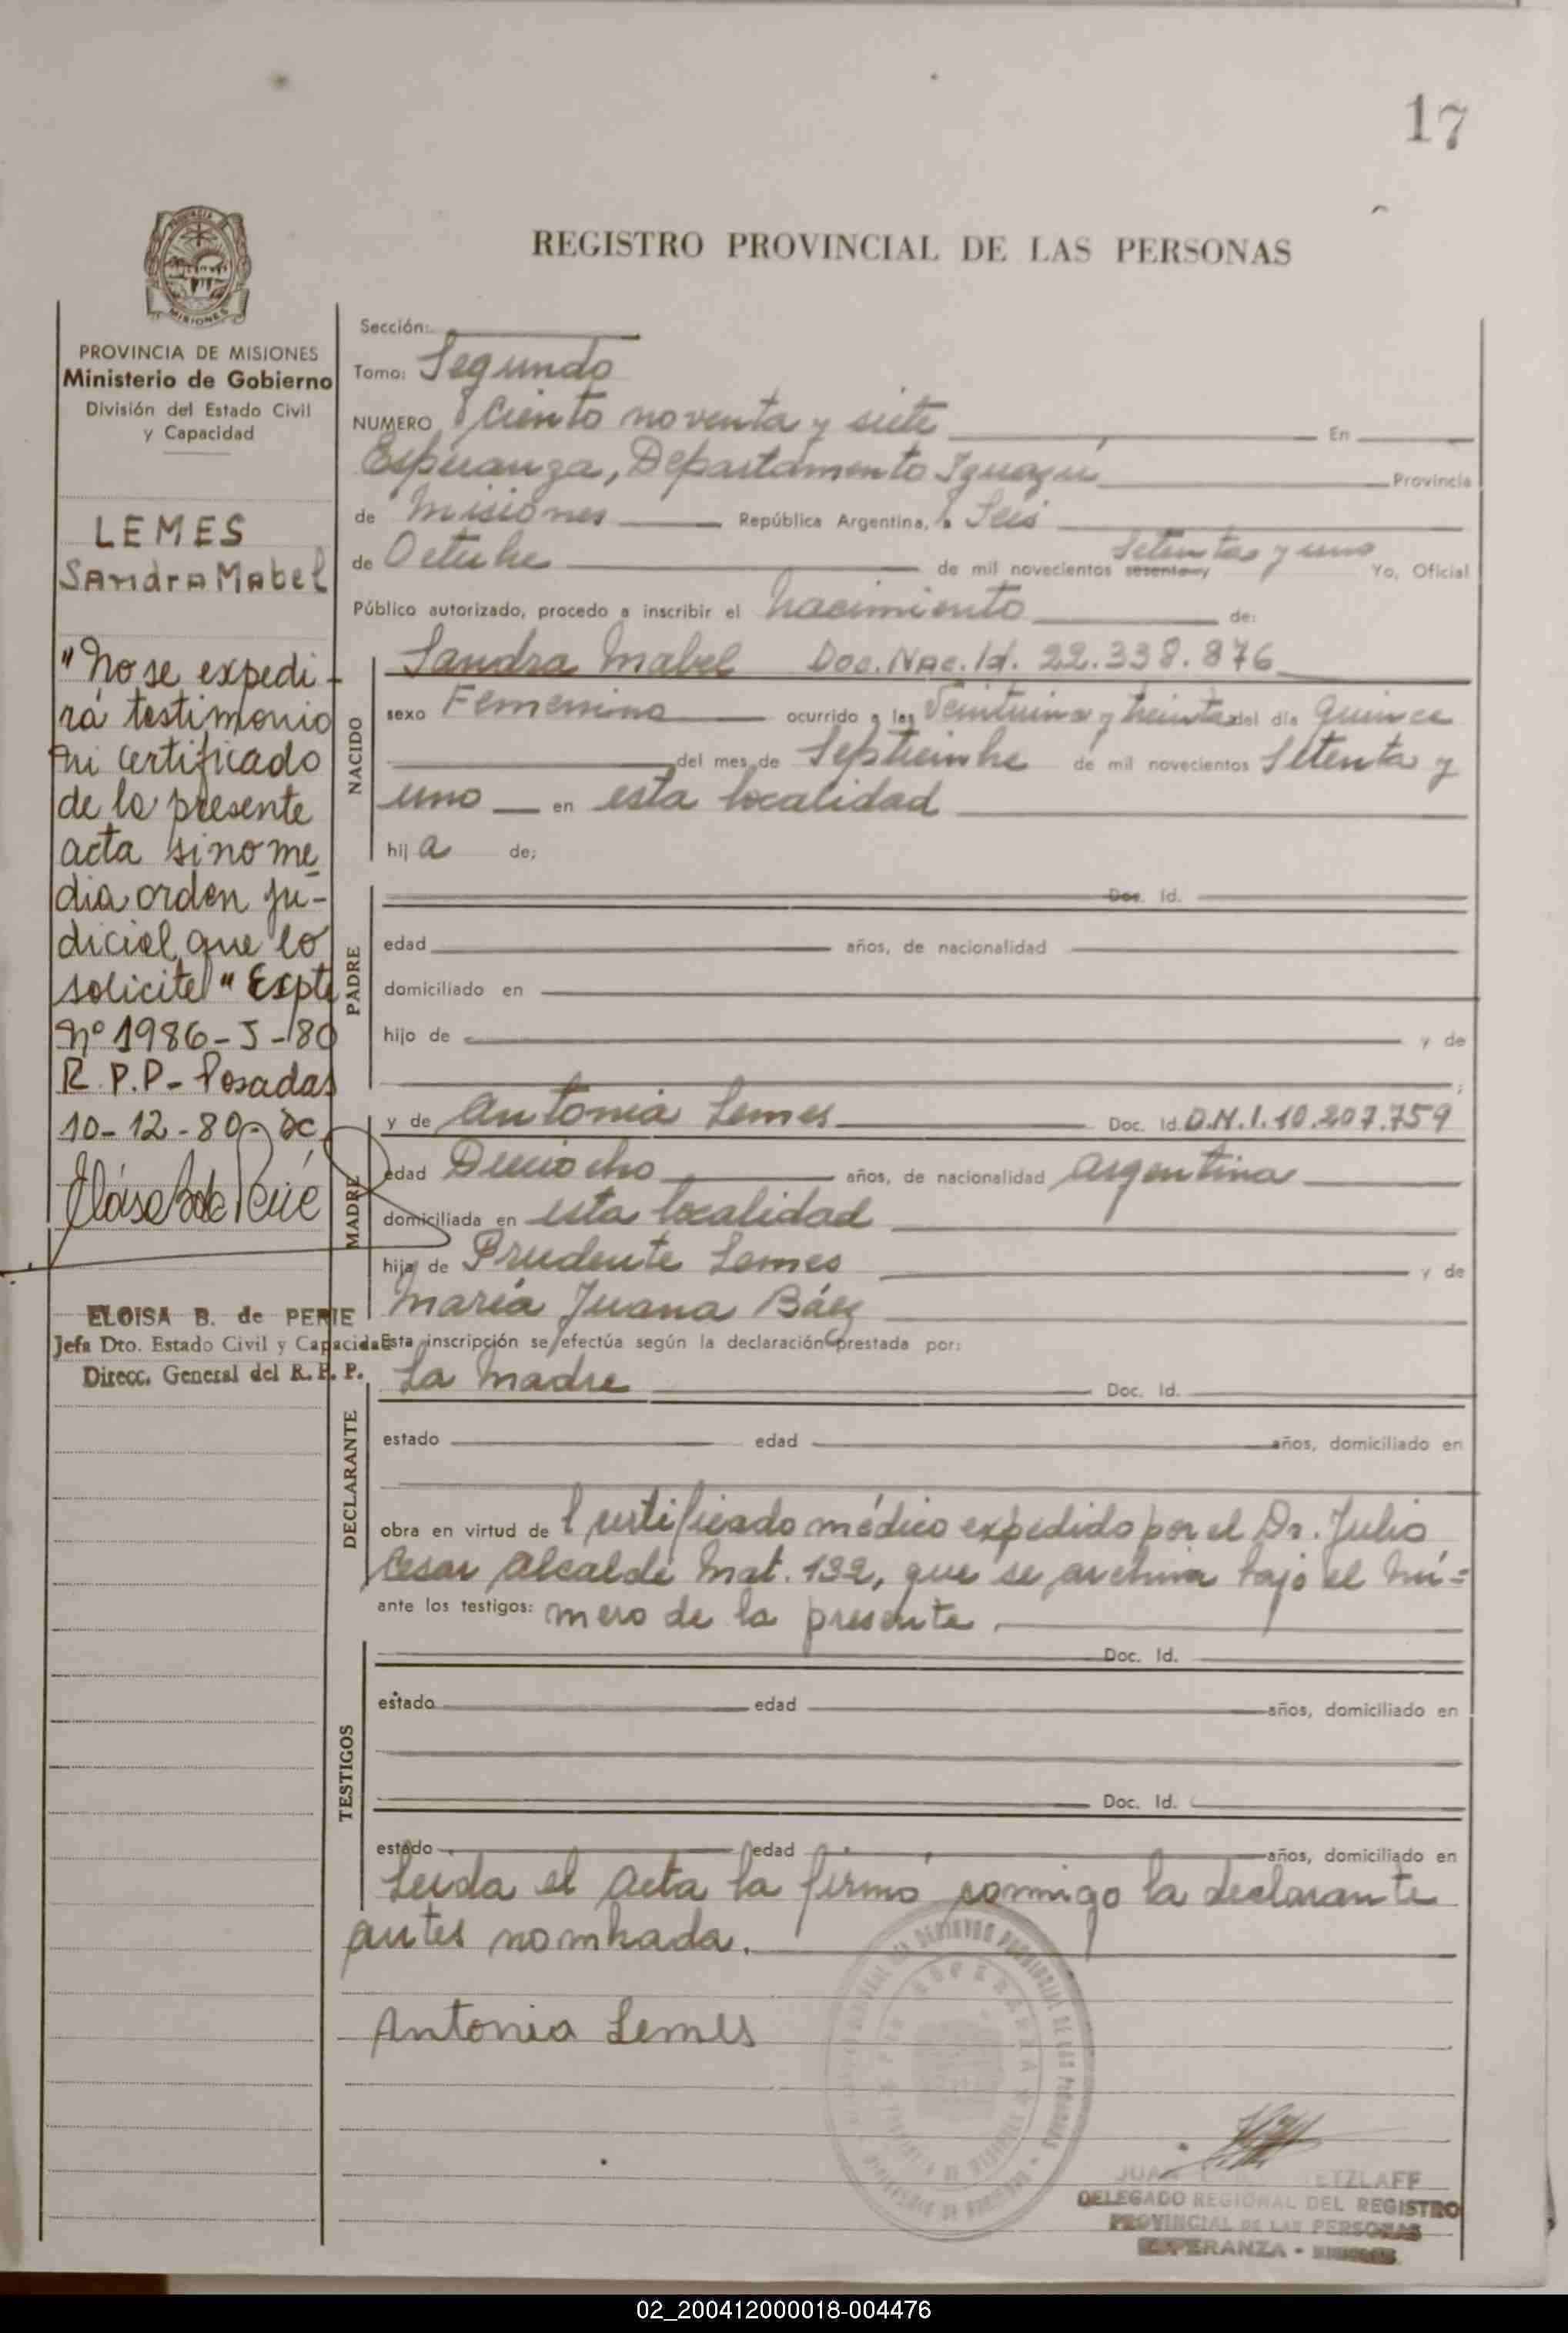 17
REGISTRO PROVINCIAL DE LAS PERSONAS
PROVINCIA DE MISIONES
Ministerio de Gobierno
División del Estado Civil
y Capacidad
LEMES
Sandra Mabel
"No se expedi-
rá testimonio
ni certificado
de la presente
acta sino me
dia orden ju-
dicial que lo
solicite" Expte
Nº 1986-J-80
R.P.P- Posadas
10-12-80-
ELOISA B. de PERIE
Jefa Dto. Estado Civil y Capacidad
Direcc. General del R. P. P.
Sección:
Tomo: Segundo
NUMERO Ciento noventa y siete En
Esperanza, Departamento Iguazú Provincia
de Misiones República Argentina, a Seis
de Octubre de mil novecientos sesenta y setenta y uno Yo, Oficial
Público autorizado, procedo a inscribir el nacimiento de:
NACIDO
Sandra Mabel Doc. Nac. Id. 22.338.876
sexo Femenino ocurrido a las Veintiuna y treinta del día quince
del mes de Septiembre de mil novecientos Setenta y
uno en esta localidad
hij a de;
PADRE
Doc. Id.
edad años, de nacionalidad
domiciliado en
hijo de y de
;
MADRE
y de Antonia Lemes Doc. Id. D.N.I. 10.207.759
edad Dieciocho años, de nacionalidad argentina
domiciliada en esta localidad
hija de Prudente Lemes y de
María Juana Báez
Esta inscripción se efectúa según la declaración prestada por:
DECLARANTE
La Madre Doc. Id.
estado edad años, domiciliado en
obra en virtud de Certificado médico expedido por el Dr. Julio
Cesar Alcalde Mat. 132, que se archiva bajo el nú=
ante los testigos: mero de la presente.
TESTIGOS
Doc. Id.
estado edad años, domiciliado en
Doc. Id.
estado edad años, domiciliado en
Leida el acta la firmó conmigo la declarante
antes nombrada.
Antonia Lemes
JUAN ETZLAFF
DELEGADO REGIONAL DEL REGISTRO
PROVINCIAL DE LAS PERSONAS
ESPERANZA - MISIONES
02_200412000018-004476